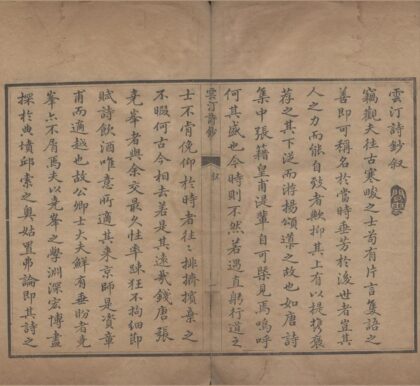 雲汀詩鈔叙
竊觀夫往古寒畯之士苟有片言隻語之
善即可稱名於當時垂芳於後世者豈其
人之力而能自致者歟抑其上有以提携褒
荐之其下從而游揚頌導之故也如唐詩
集中張籍皇甫湜輩自可槩見焉嗚呼
何其盛也今時則不然若遇直躬行道之
雲汀詩鈔
叙
士不肯俛仰於時者往〻排擠擯棄之
不暇何古今相去若是其遠哉錢唐張
堯峯者與余交最久性率踈狂不拘細節
賦詩飲酒唯意所適其来京師是資章
甫而適越也故公卿士大夫鮮有垂盼者堯
峯亦不屑焉夫以堯峯之學淵深宏博盡
探於典墳邱索之奥姑置弗論即其詩之